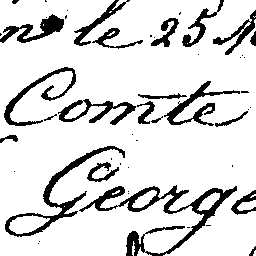 le 25
Comte
George